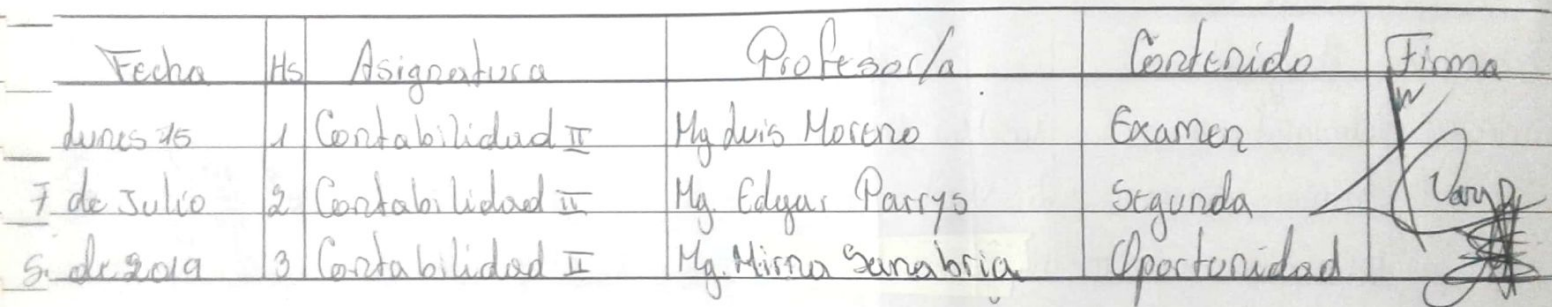 Fecha Hs Asignatura Profesor/a Contenido Firma
Lunes 15 1 Contabilidad II Mg Luis Moreno Examen
7 de Julio 2 Contabilidad II Mg. Edgar Parrys Segunda
S. de 2019 3 Contabilidad II Mg. Mirna Sanabria Oportunidad